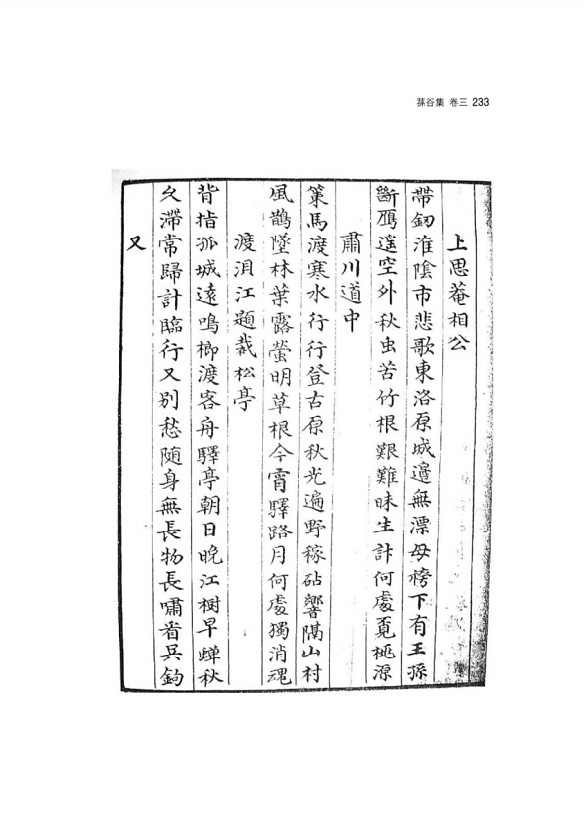 蓀谷集 卷三 233
上思菴相公
帶釰淮陰市悲歌東洛原城邊無漂母榜下有王孫
斷鴈遥空外秋虫苦竹根艱難昧生計何處覔桃源
肅川道中
策馬渡寒水行行登古原秋光遍野稼砧響隔山村
風鵲墜林葉露螢明草根今宵驛路月何處獨消魂
渡浿江題栽松亭
背指孤城遠鳴榔渡客舟驛亭朝日晚江樹早蟬秋
久滯常歸計臨行又別愁随身無長物長嘯看吳鈎
又